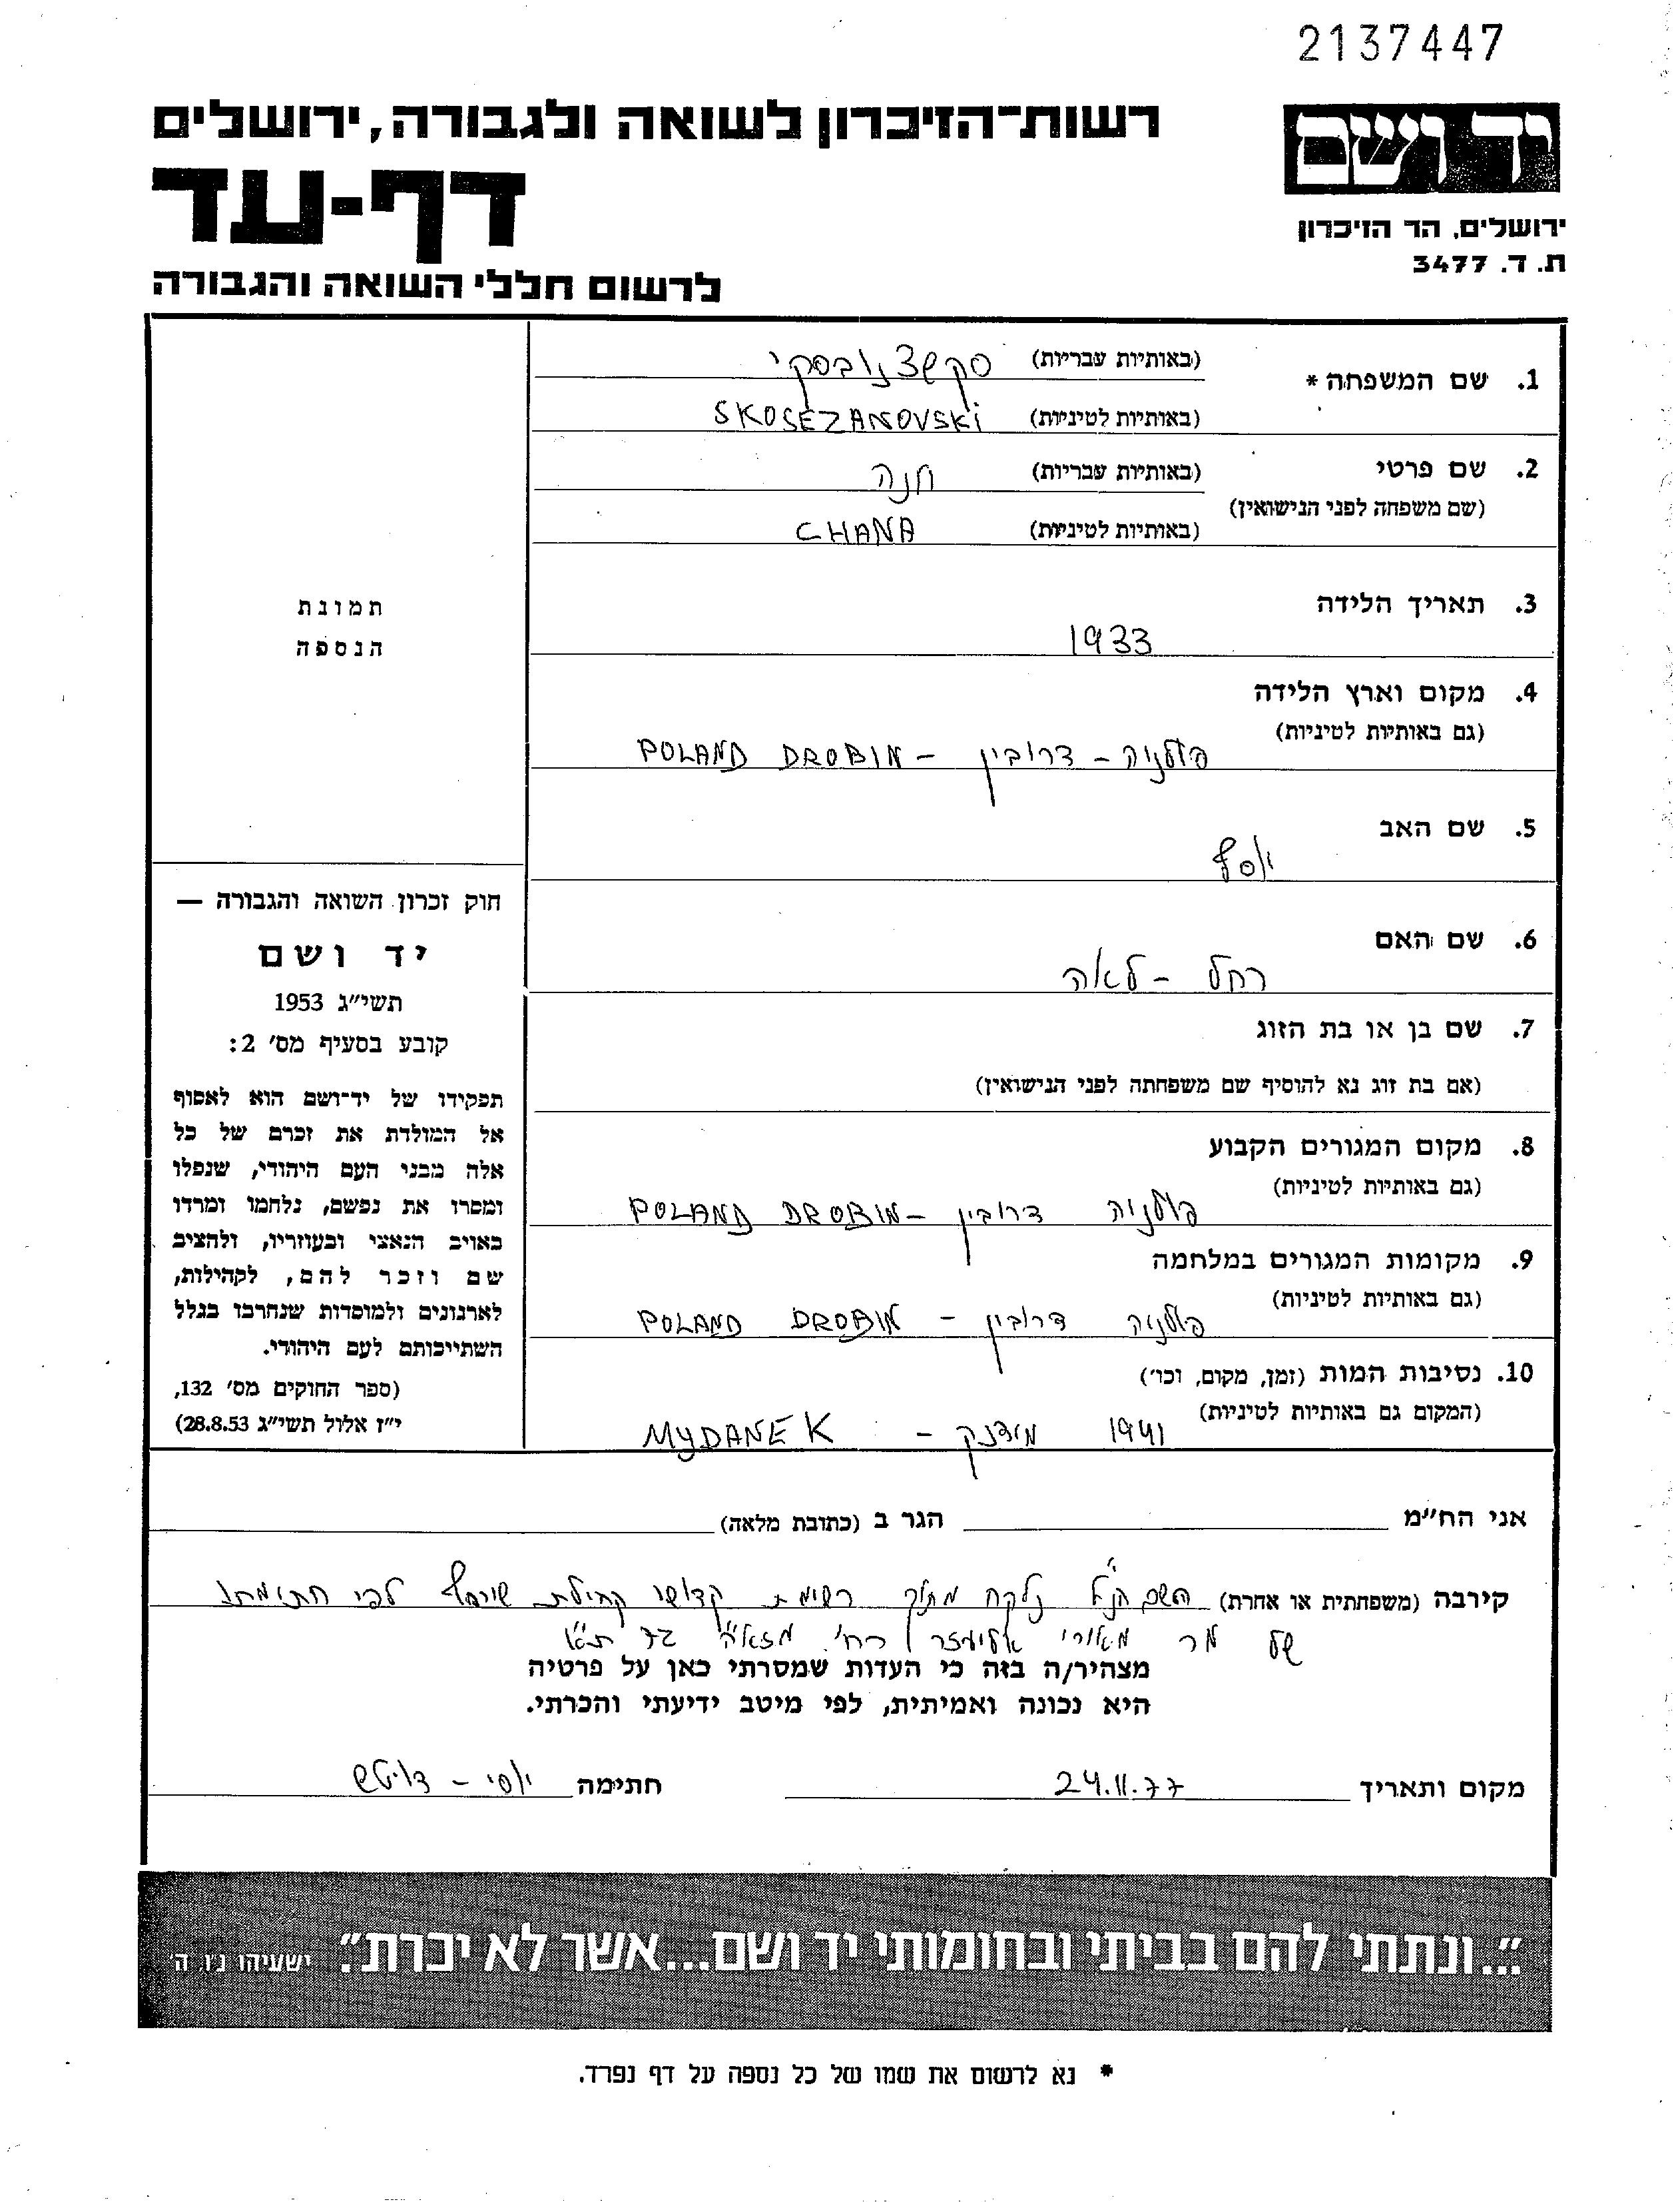 2137447
רשות־הזיכרון לשואה ולגבורה, ירושלים
יד ושם
דף-עד
ירושלים, הר הזיכרון
ת. ד. 3477
לרשום חללי השואה והגבורה
1. שם המשפחה * (באותיות עבריות) סקשצנובסקי
(באותיות לטיניות) SKOSEZANOVSKi
2. שם פרטי (באותיות עבריות) חנה
(שם משפחה לפני הנישואין)
(באותיות לטיניות) CHANA
3. תאריך הלידה
1933
4. מקום וארץ הלידה
(גם באותיות לטיניות)
פולניה - דרובין - POLAND DROBIN
5. שם האב
יוסף
6. שם האם
רחל - לאה
7. שם בן או בת הזוג
(אם בת זוג נא להוסיף שם משפחתה לפני הנישואין)
8. מקום המגורים הקבוע
(גם באותיות לטיניות)
פולניה דרובין - POLAND DROBIN
9. מקומות המגורים במלחמה
(גם באותיות לטיניות)
פולניה דרובין - POLAND DROBIN
10. נסיבות המות (זמן, מקום, וכו')
(המקום גם באותיות לטיניות)
1941 מידנק - MYDANEK
תמונת
הנספה
חוק זכרון השואה והגבורה —
יד ושם
תשי"ג 1953
קובע בסעיף מס' 2:
תפקידו של יד־ושם הוא לאסוף
אל המולדת את זכרם של כל
אלה מבני העם היהודי, שנפלו
ומסרו את נפשם, נלחמו ומרדו
באויב הנאצי ובעוזריו, ולהציב
שם וזכר להם, לקהילות,
לארגונים ולמוסדות שנחרבו בגלל
השתייכותם לעם היהודי.
(ספר החוקים מס' 132,
י"ז אלול תשי"ג 28.8.53)
אני הח"מ הגר ב (כתובת מלאה)
קירבה (משפחתית או אחרת) השם הנ"ל נלקח מתוך רשימת קדושי קהילת לפי חתימתו
של מר מאורי אליעזר רח' מזא"ה 72 ת"א
מצהיר/ה בזה כי העדות שמסרתי כאן על פרטיה
היא נכונה ואמיתית, לפי מיטב ידיעתי והכרתי.
מקום ותאריך 24.11.77 חתימה יוסי - דויטש
"...ונתתי להם בביתי ובחומותי יד ושם...אשר לא יכרת". ישעיהו נ"ו, ה'
* נא לרשום את שמו של כל נספה על דף נפרד.